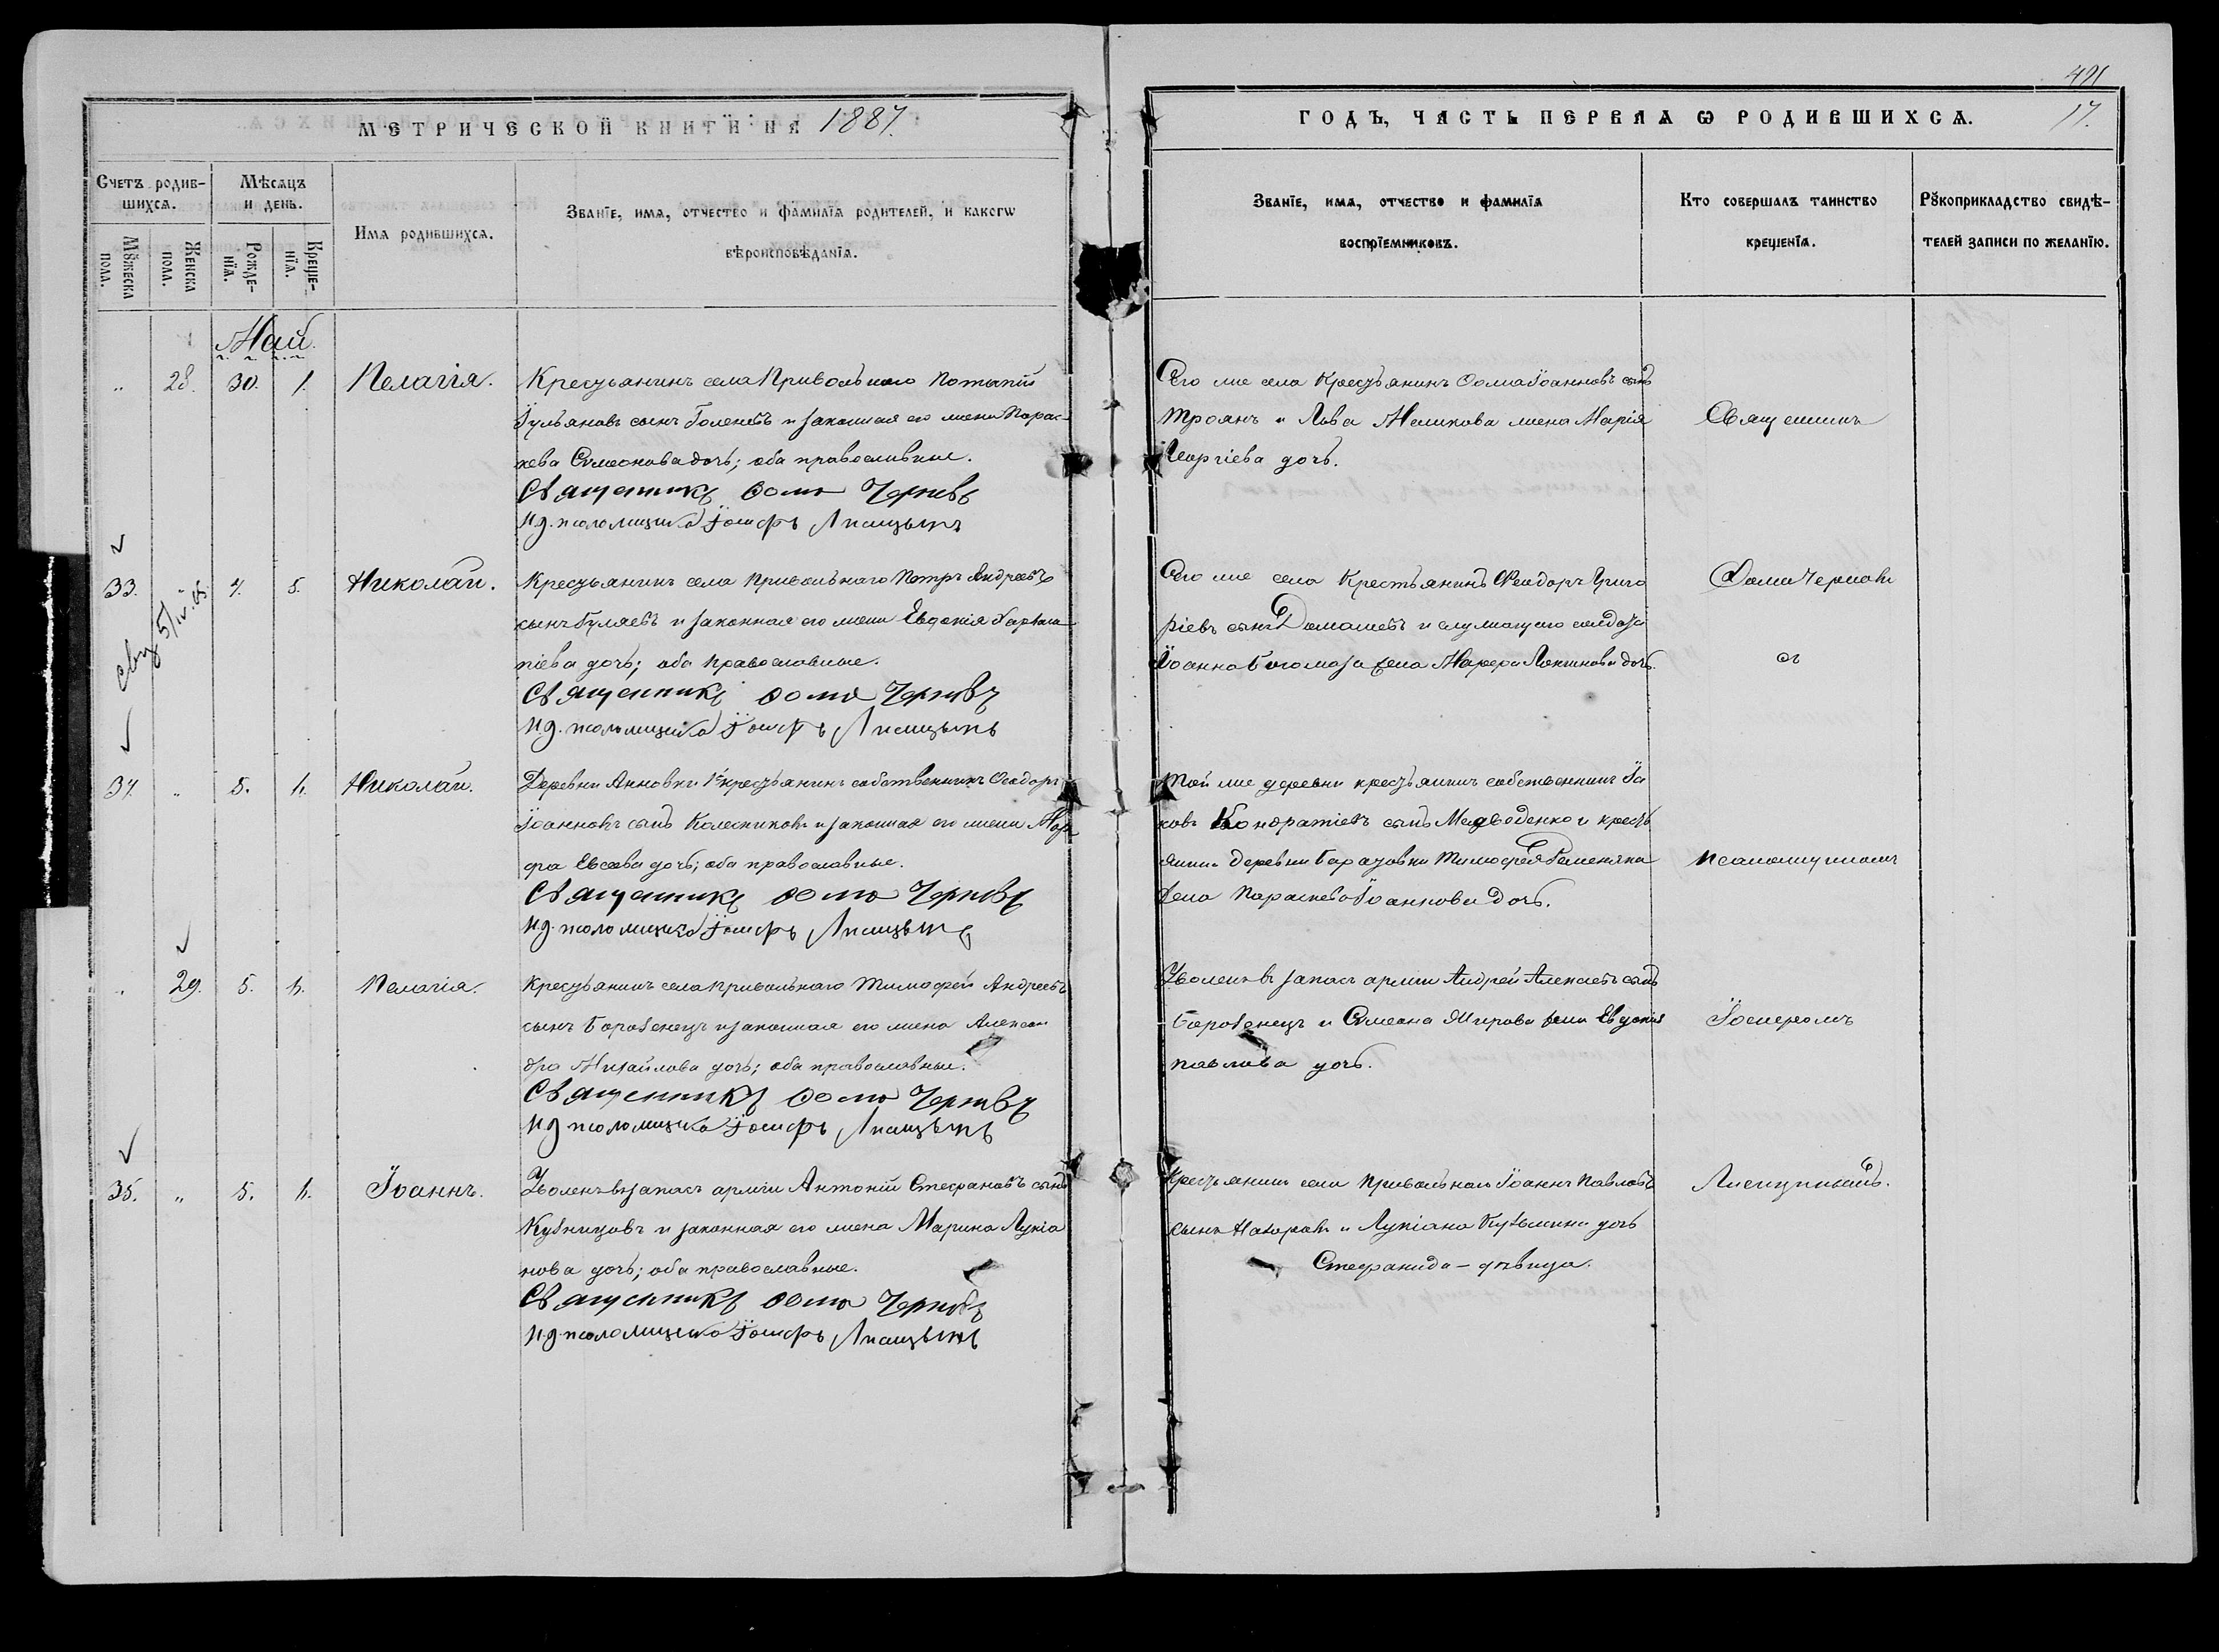 421
МЕТРИЧЕСКОЙ КНИГИ НА 1887.
ГОДЪ, ЧАСТЬ ПЕРВАЯ Ѡ РОДИВШИХСѦ.
17.
Счетъ родив-
шихсѧ.
Мѣсѧцъ
и день.
Имѧ родившихсѧ.
Званїе, имѧ, отчество и фамилїѧ родителей, и какогѡ
вѣроисповѣданїѧ.
Мꙋжеска
пола.
Женска
пола.
Рожде-
нїѧ.
Креще-
нїѧ.
Званїе, имѧ, отчество и фамилїѧ
воспрїемниковъ.
Кто совершалъ таинство
крещенїѧ.
Рꙋкоприкладство свидѣ-
телей записи по желанїю.
Май.
„ 28. 30. 1. Пелагія.
Крестьянинъ села Привольнаго Потапій
Іульяновъ сынъ и законная его жена Парас-
кева Симеонова дочь; оба православные.
Священникъ Ѳома Черновъ
И.д. псаломщика Іосифъ Лисицынъ
Того же села Крестьянинъ Ѳома Іоанновъ сынъ
Троянъ и Льва жена Марія
Георгіева дочь.
Священникъ
33. „ 5. Николай.
Крестьянинъ села Привольнаго Петръ Андреевъ
сынъ Гуляевъ и законная его жена Евдокія Харлам
піева дочь; оба православные.
Священникъ Ѳома Черновъ
И.д. псаломщика Іосифъ Лисицынъ
Того же села Крестьянинъ Ѳеодоръ Григо
ріевъ сынъ и служащаго солдата
Іоанна Богомаза жена Марфа Логинова дочь.
Ѳома Черновъ
съ
34. „ 5. Николай.
Деревни Анновки крестьянинъ собственникъ Ѳеодоръ
Іоанновъ сынъ Колесниковъ и законная его жена Мар
фа Евсеева дочь; оба православные.
Священникъ Ѳома Черновъ
И.д. псаломщика Іосифъ Лисицынъ
Той же деревни крестьянинъ собственникъ Іа
ковъ Кондратіевъ сынъ Медведенко и кресть
янина деревни Тимофея
жена Параскева Іоаннова дочь.
псаломщикомъ
„ 29. 5. Пелагія.
Крестьянинъ села Привольнаго Тимофей Андреевъ
сынъ Бороденецъ и законная его жена Алексан
дра Михайлова дочь; оба православные.
Священникъ Ѳома Черновъ
И.д. псаломщика Іосифъ Лисицынъ
Уволенъ въ запасъ арміи Андрей Алексеевъ сынъ
Бороденецъ и Симеона жена Евдокія
Павлова дочь.
Іосифомъ
35. „ 5. Іоаннъ.
Уволенъ въ запасъ арміи Антоній Стефановъ сынъ
Кузнецовъ и законная его жена Марина Лукіа
нова дочь; оба православные.
Священникъ Ѳома Черновъ
И.д. псаломщика Іосифъ Лисицынъ
Крестьянинъ села Привольнаго Іоаннъ Павловъ
сынъ и Лукіана Кузьмина дочь
Стефанида – дѣвица.
Лисицынымъ.